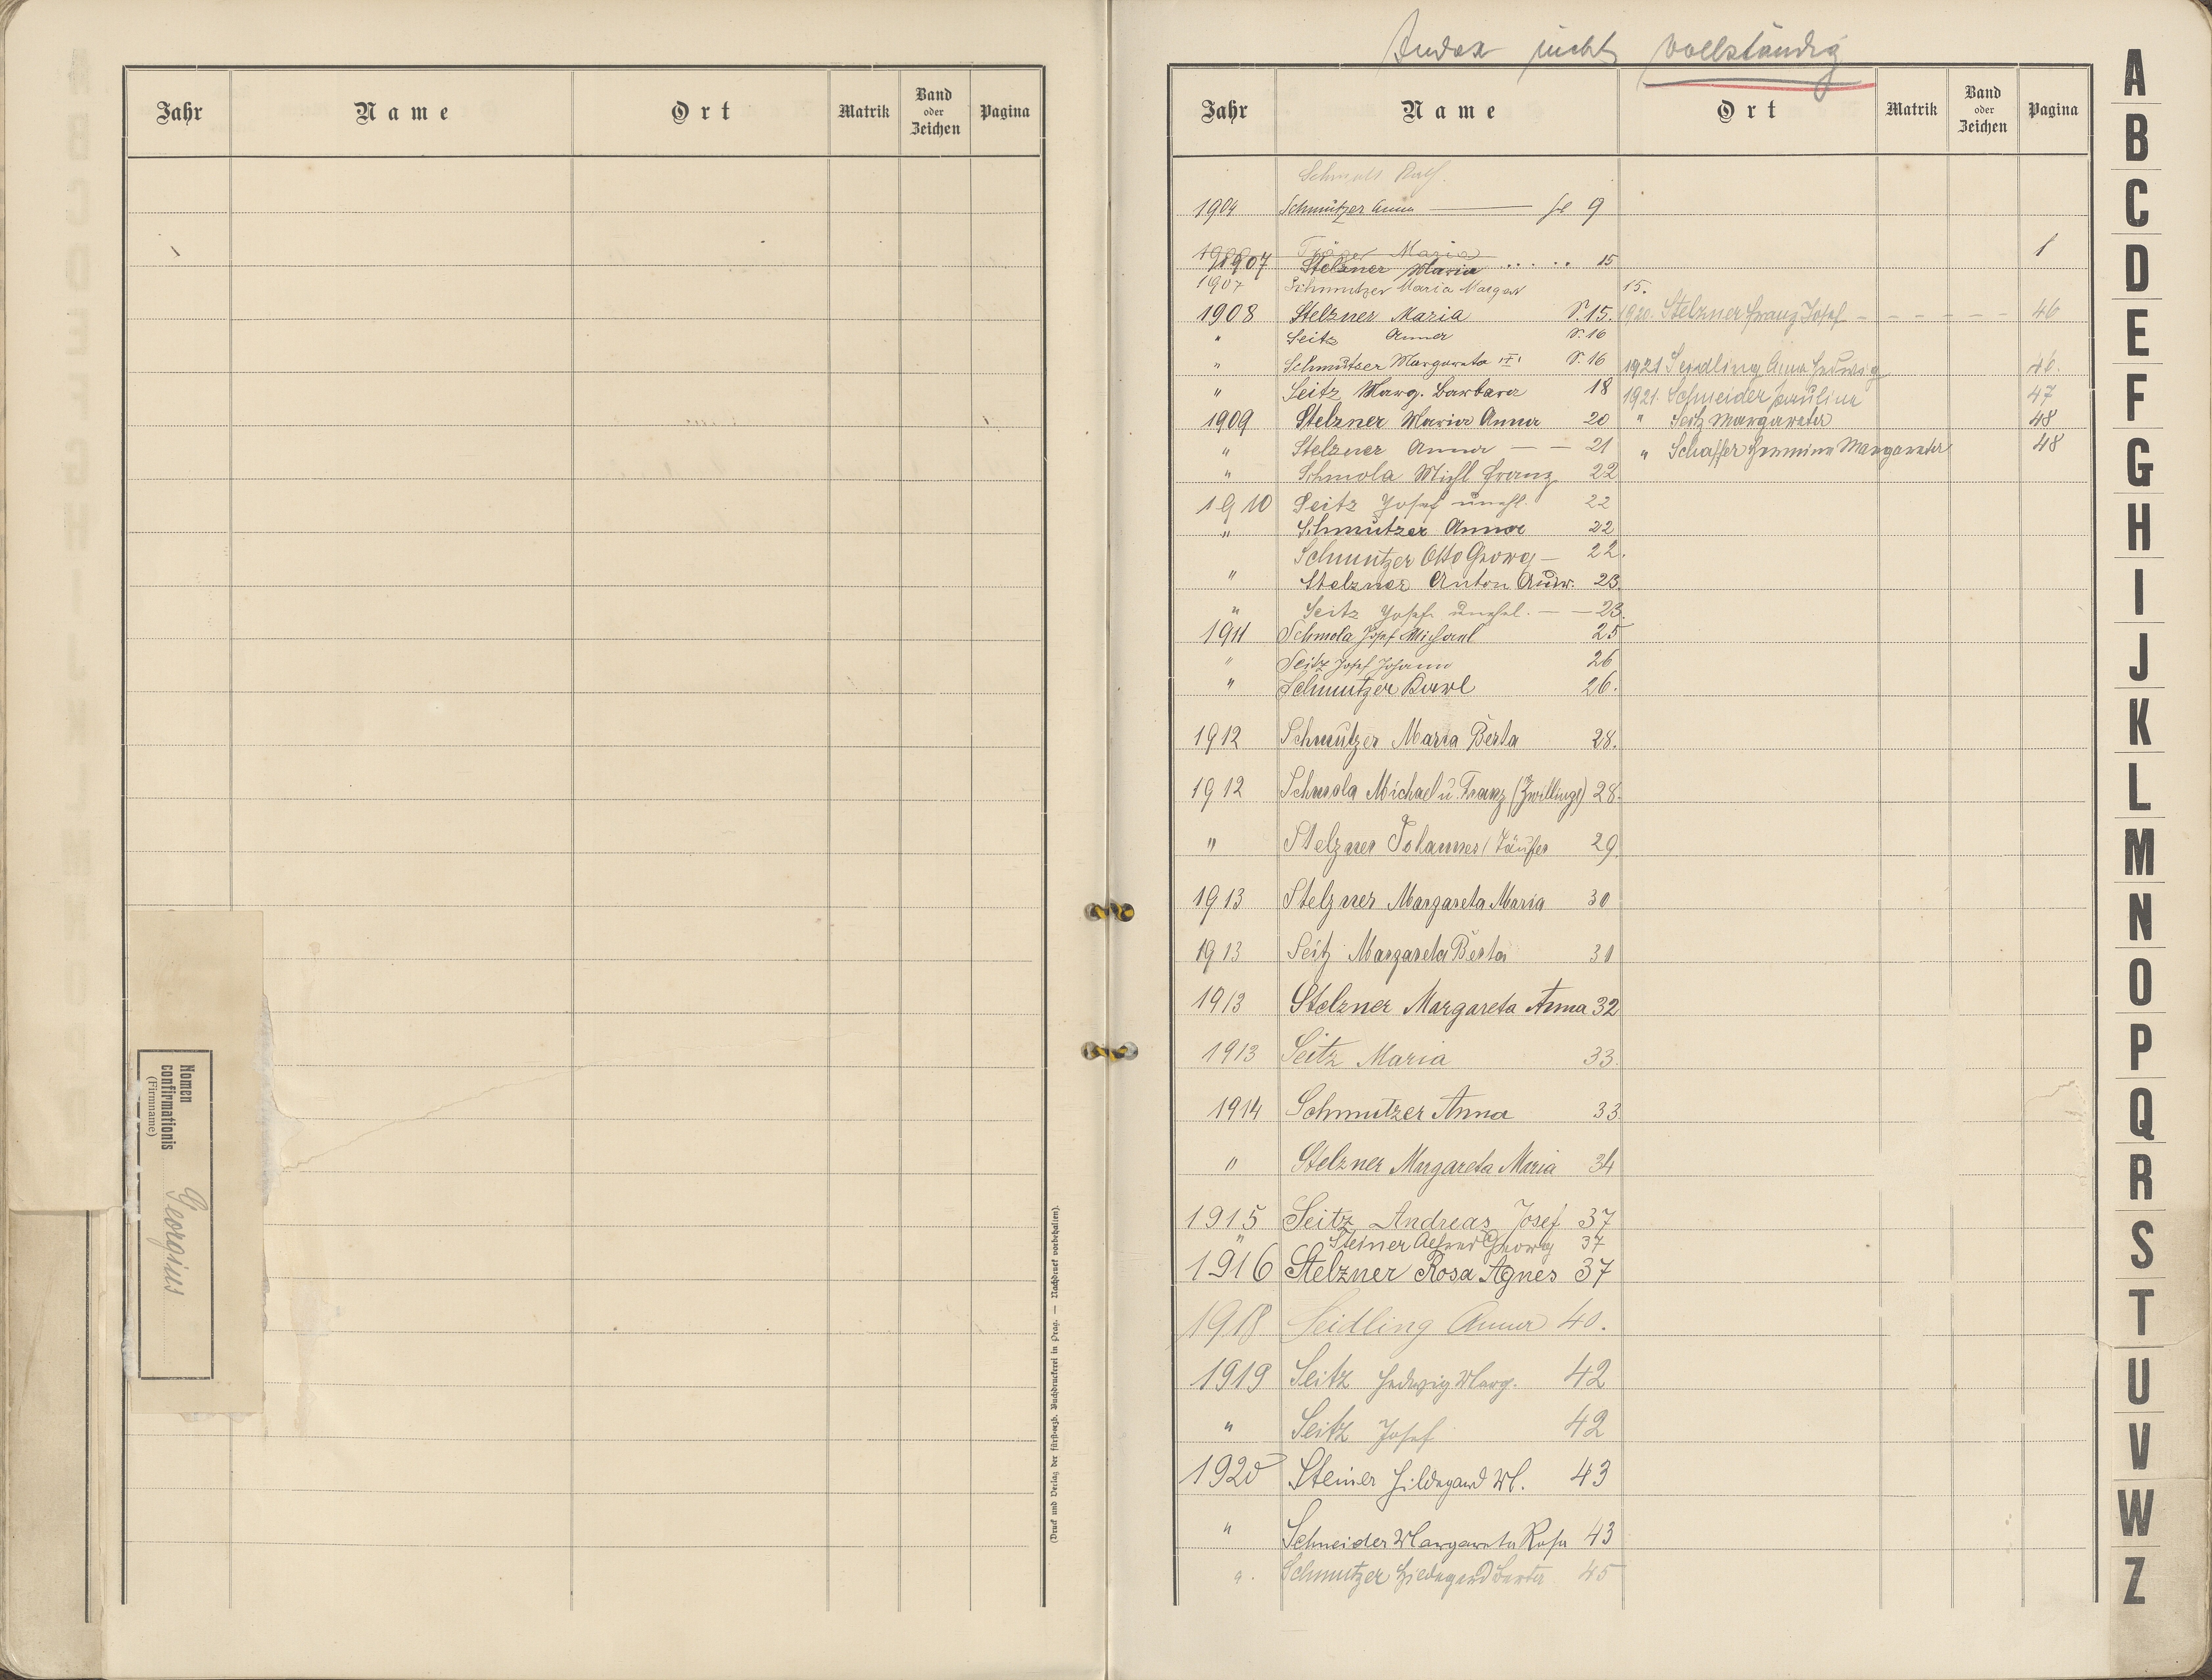 Jahr Name Ort Matrik Band oder Zeichen Pagina
Nomen
confirmationis
(Firmname)
Georgius
(Druck und Verlag der fürsterzb. Buchdruckerei in Prag. — Nachdruck vorbehalten).
Index nicht vollständig
Jahr Name Ort Matrik Band oder Zeichen Pagina
1904 Schmutzer Anna — 9
Träger Maria 1
1907 Stelzner Maria ..... 15
1907 Schmutzer Maria Margar 15.
1908 Stelzner Maria S. 15. 1920. Stelzner Franz Josef - - - - - 46
" Seitz Anna S. 16
" Schmutzer Margareta S. 16 1921 Seidling Anna Hedwig 46.
" Seitz Marg. Barbara 18 1921. Schneider Paulina 47
1909 Stelzner Maria Anna 20 " Seitz Margareta 48
" Stelzner Anna — — 21 " Schaffer Hermine Margareta 48
" Schmola Michl Franz 22
1910 Seitz Josef unehl. 22
" Schmutzer Anna 22
Schmutzer Otto Georg — 22.
" Stelzner Anton Andr. 23
" Seitz Josef unehel. — — 23.
1911 Schmola Josef Michael 25
" Seitz Josef Johann 26
" Schmutzer Karl 26.
1912 Schmutzer Maria Berta 28.
1912 Schmola Michael u. Franz (Zwillinge) 28.
" Stelzner Johannes / Täufer 29.
1913 Stelzner Margareta Maria 30
1913 Seitz Margareta Berta 31
1913 Stelzner Margareta Anna 32
1913 Seitz Maria 33.
1914 Schmutzer Anna 33
" Stelzner Margareta Maria 34
1915 Seitz Andreas Josef 37
" Steiner Alfred Georg 37
1916 Stelzner Rosa Agnes 37
1918 Seidling Anna 40.
1919 Seitz Hedwig Marg. 42
" Seitz Josef 42
1920 Steiner Hildegard M. 43
" Schneider Margareta Rosa 43
" Schmutzer Hildegard Berta 45
A
B
C
D
E
F
G
H
I
J
K
L
M
N
O
P
Q
R
S
T
U
V
W
Z